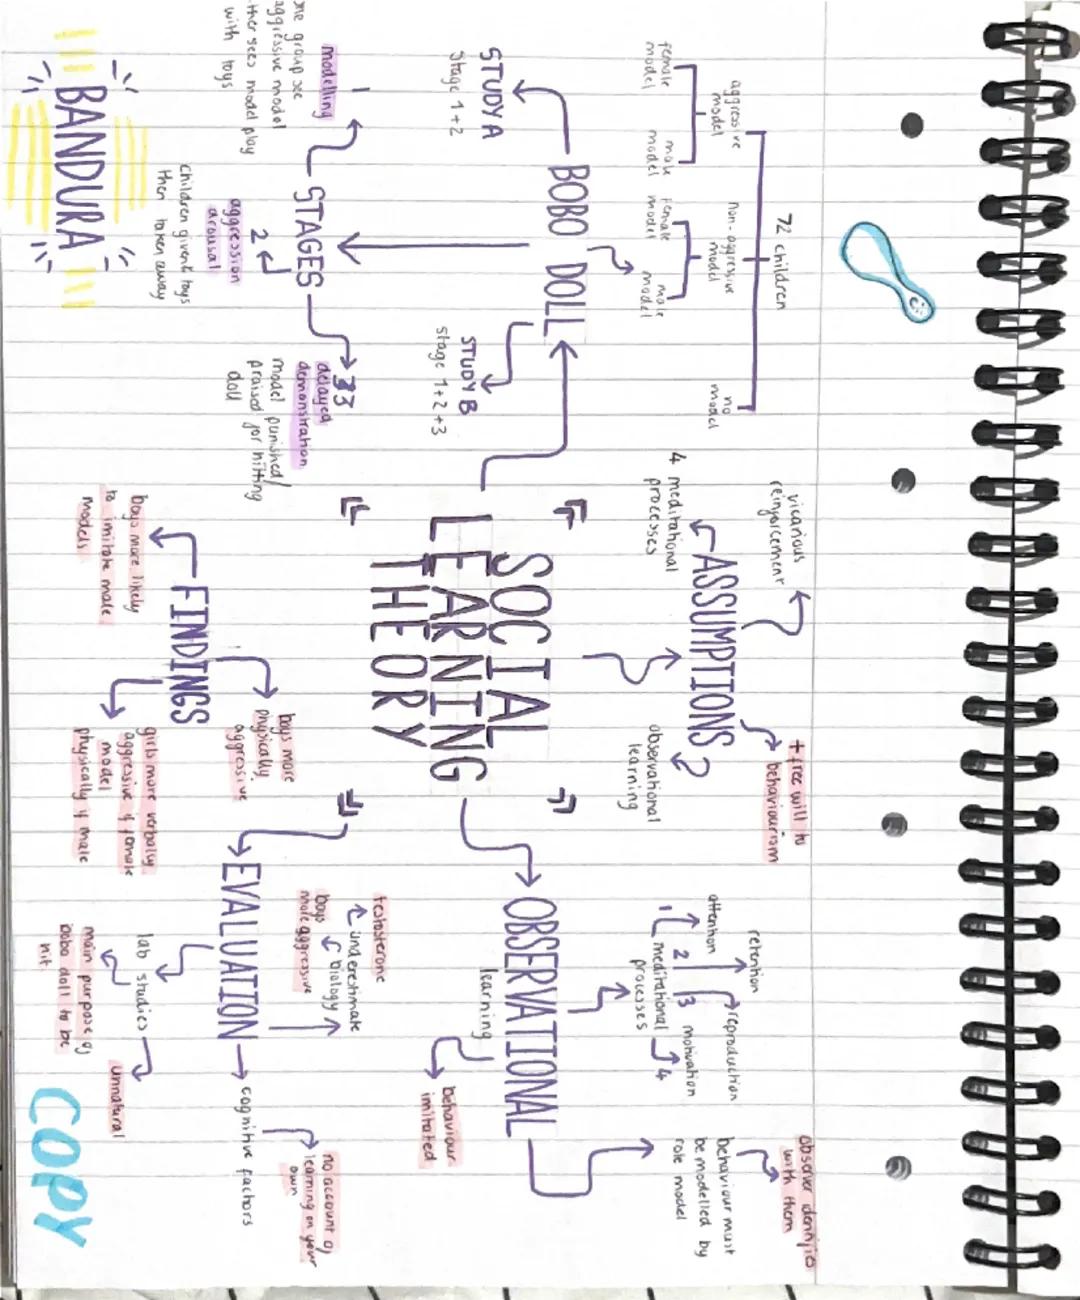 72 children
aggressive
model
non-aggressive
model
no
model
female
model
male
model
female
model
male
model
BOBO DOLL
STUDY A
Stage 1+2
STUDY B
stage 1+2+3
STAGES
1
modelling
aggressive model
ther sees model play
with toys
2
aggression
arousal
children given toys
then taken away
33
delayed
demonstration
model punished/
praised for hitting
doll
BANDURA
SOCIAL
LEARNING
THEORY
ASSUMPTIONS
vicarious
reinforcement
4 meditational
processes
observational
learning
+ free will to
behaviourism
FINDINGS
boys more likely
to imitate male
models
boys more
physically
aggressive
girls more verbally
aggressive if female
model
physically if male
OBSERVATIONAL
learning
behaviour
imitated
meditational
processes
1
attention
2
retention
3
reproduction
4
motivation
behaviour must
be modelled by
role model
observer idenfies
with them
EVALUATION
underestimate
biology
testosterone
boys
more aggressive
lab studies
main purpose of
bobo doll to be
hit
unnatural
cognitive factors
no account of
learning on your
own
COPY